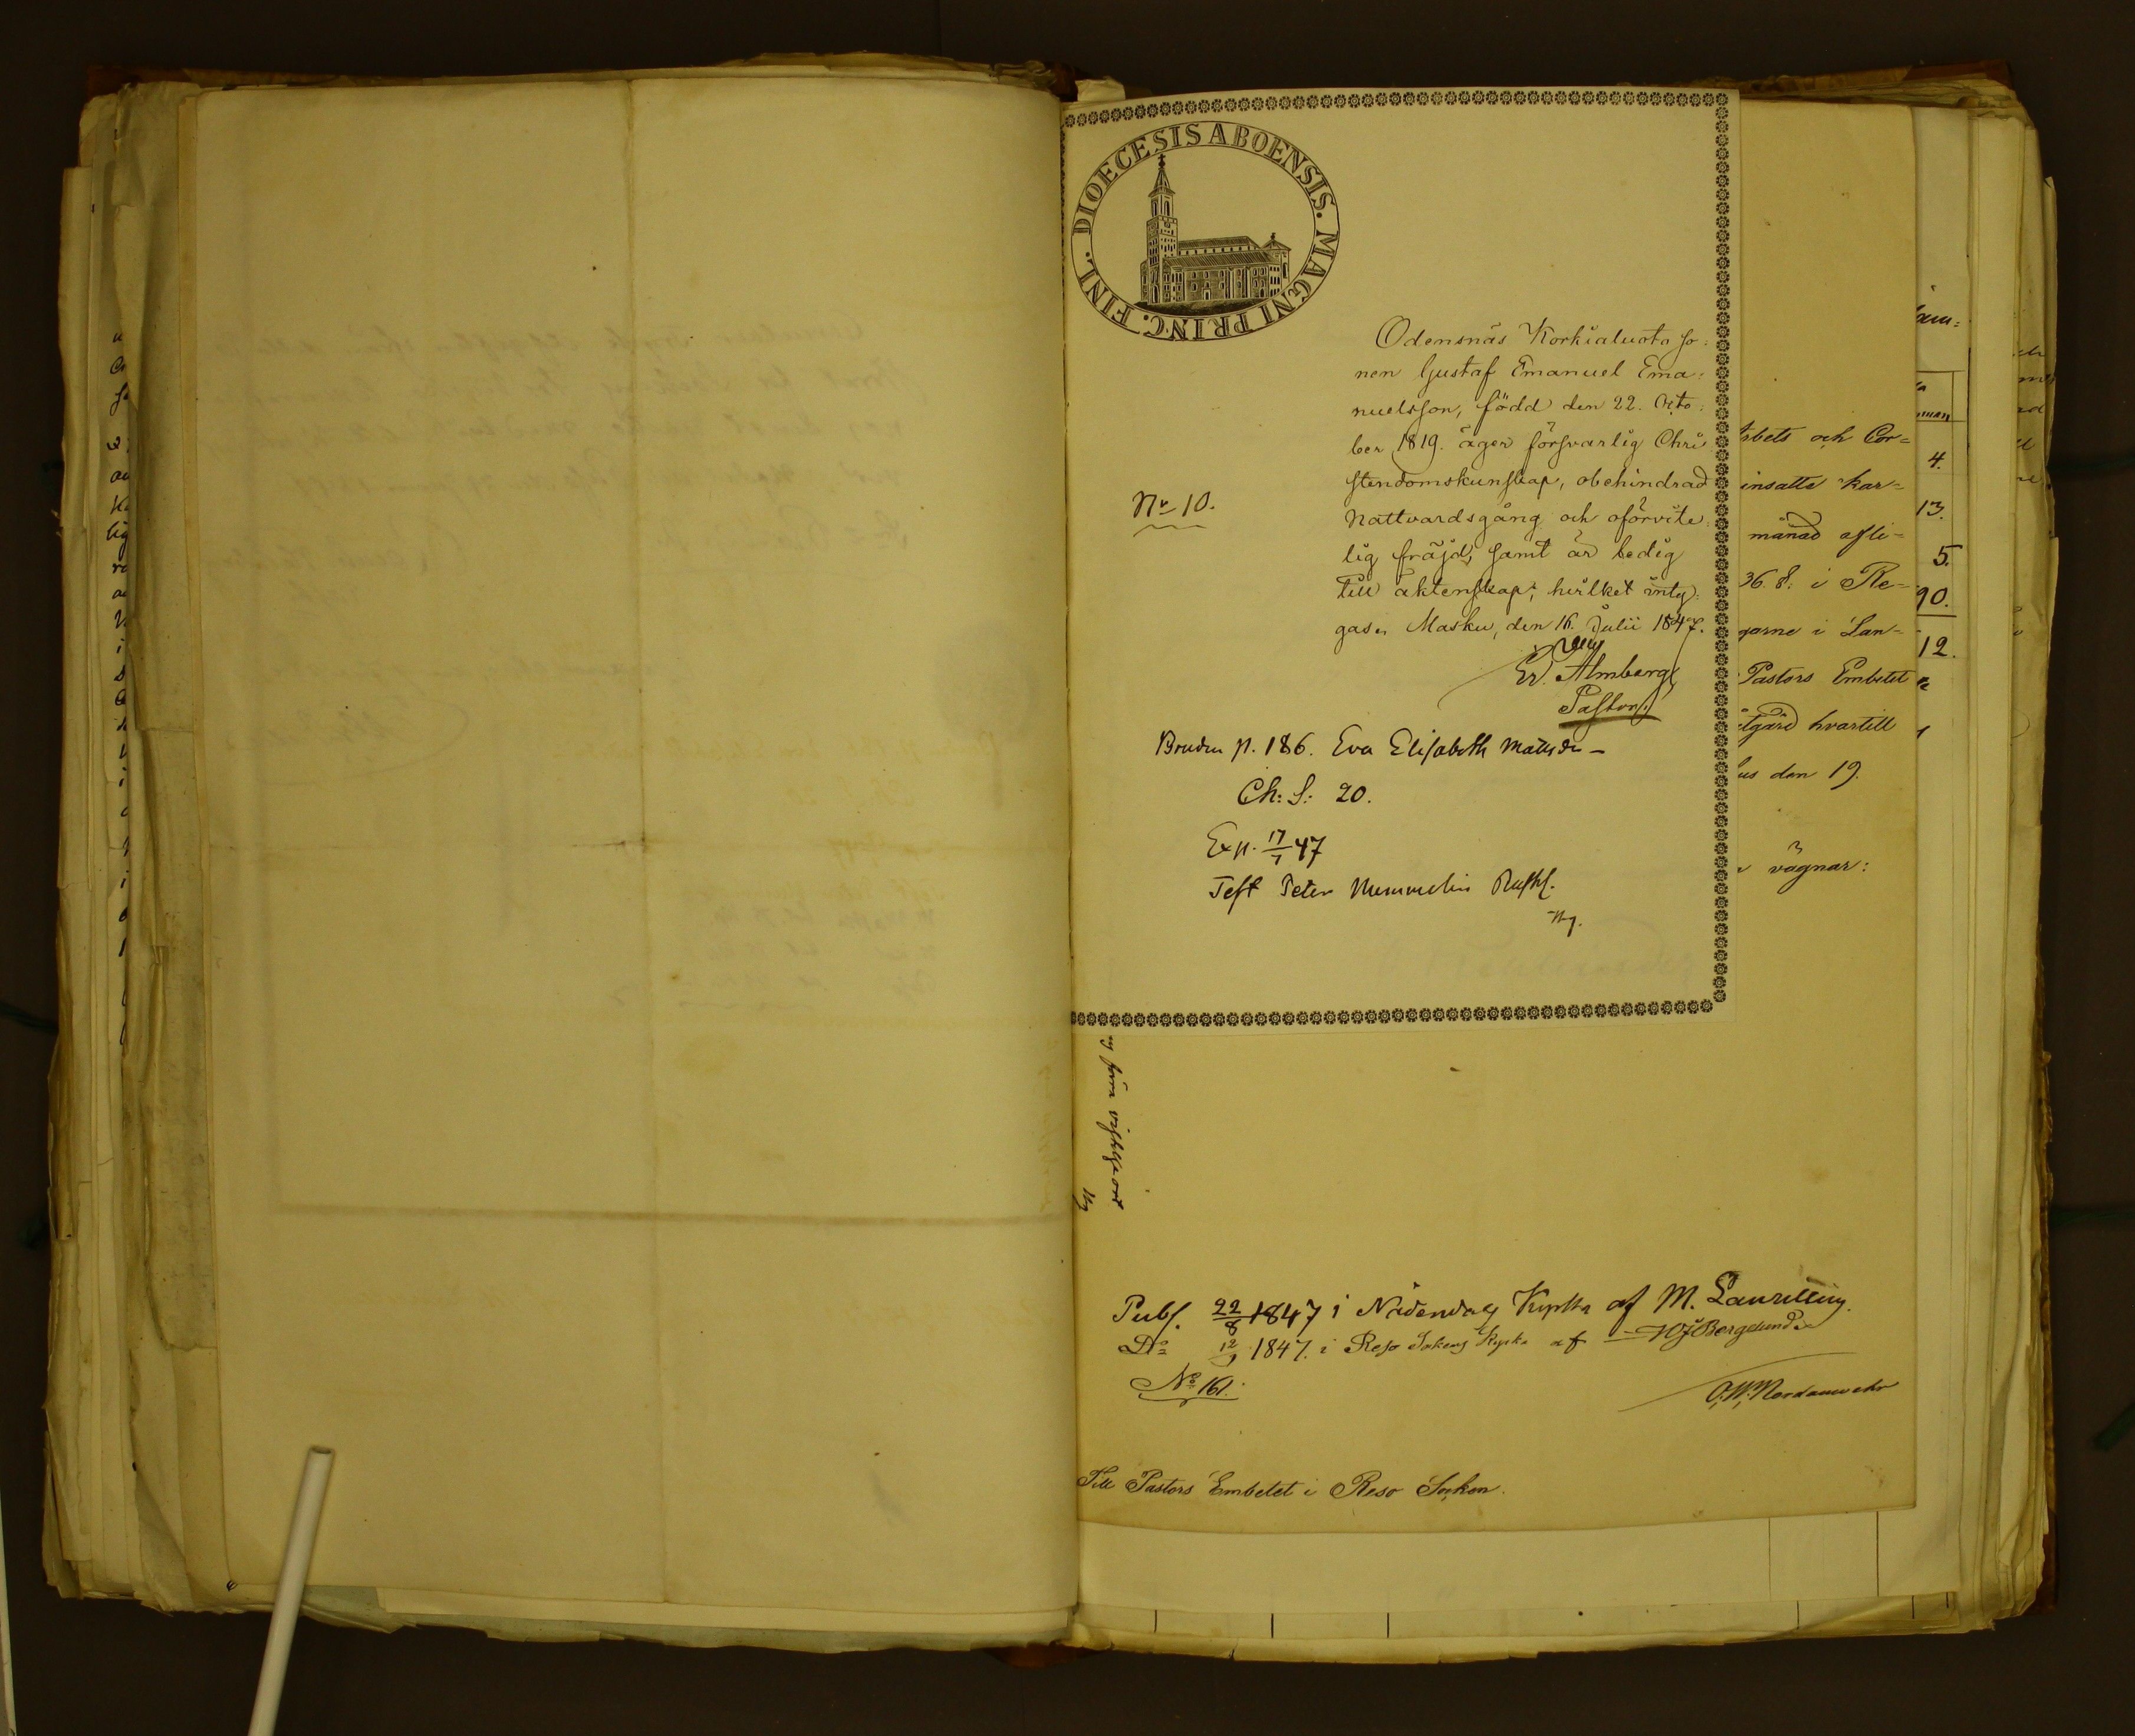 DIOECESIS ABOENSIS. MAGNI PRINC. FINL.
Odensnäs Korkialuoto so:
nen Gustaf Emanuel Ema:
nuelsson, född den 22. Octo:
ber 1819. äger försvarlig Chri
stendomskunskap, obehindrad
Nattvardsgång och oförvite:
lig fräjd, samt är ledig
till äktenskap; hvilket inty:
gas. Masku, den 16. Julii 1847.
Nr 10.
Er. Almberg
Pastor.
Bruden p. 186. Eva Elisabeth Mattsdr
Ch: S: 20.
Exp. 17/7 47
Test Peter Rusth.
Arbets och Cor=
insatte kar=
månad afli=
36. 8. i Re=
garne i Län=
Pastors Embetet
åtgärd hvartill
hus den 19.
vägnar:
4.
13.
5.
90.
12.
Publ. 22/8 1847 i Nådendals Kyrka af M. Laurell
Do 12/9 1847. i Reso Sokens Kyrka af Bergelund
No 161.
O. W. Nordanwehr
Till Pastors Embetet i Reso Socken.